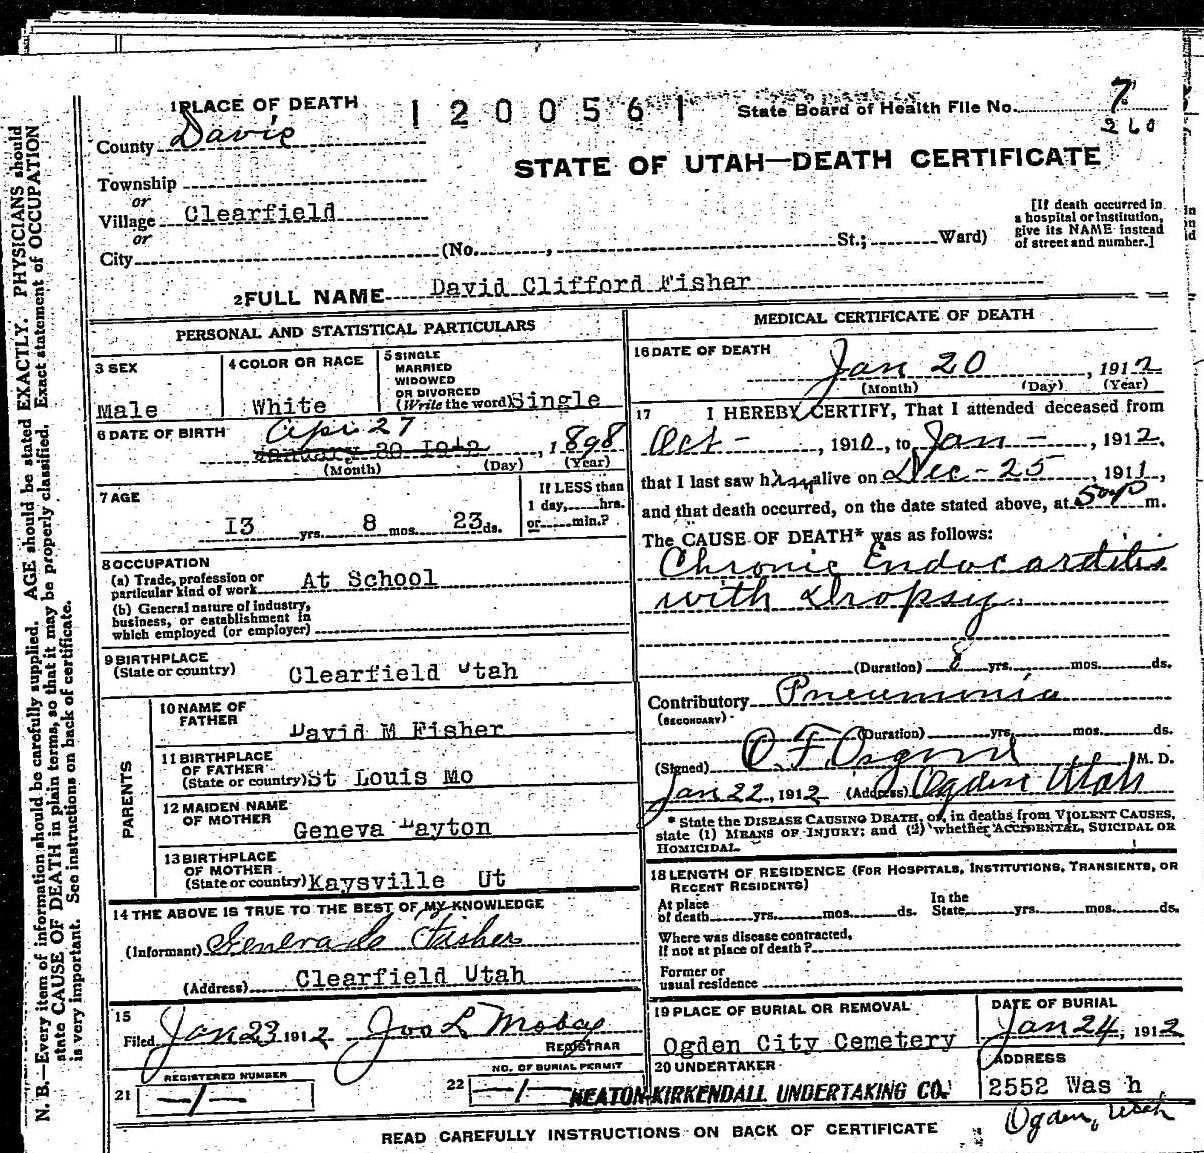 1 PLACE OF DEATH
1200561
State Board of Health File No. 7
260
County Davis
STATE OF UTAH—DEATH CERTIFICATE
Township
or
Village Clearfield
or
City (No. , St.; Ward)
[If death occurred in
a hospital or institution,
give its NAME instead
of street and number.]
2 FULL NAME David Clifford Fisher
PERSONAL AND STATISTICAL PARTICULARS
3 SEX
Male
4 COLOR OR RACE
White
5 SINGLE
MARRIED
WIDOWED
OR DIVORCED
(Write the word) Single
6 DATE OF BIRTH
Apr 27
January 20 1912, 1898
(Month) (Day) (Year)
7 AGE
13 yrs. 8 mos. 23 ds.
If LESS than
1 day, hrs.
or min.?
8 OCCUPATION
(a) Trade, profession or
particular kind of work At School
(b) General nature of industry,
business, or establishment in
which employed (or employer)
9 BIRTHPLACE
(State or country) Clearfield Utah
PARENTS
10 NAME OF
FATHER David M Fisher
11 BIRTHPLACE
OF FATHER
(State or country) St Louis Mo
12 MAIDEN NAME
OF MOTHER Geneva Layton
13 BIRTHPLACE
OF MOTHER
(State or country) Kaysville Ut
14 THE ABOVE IS TRUE TO THE BEST OF MY KNOWLEDGE
(Informant) Fisher
(Address) Clearfield Utah
15
Filed Jan 23 1912 Jos L
REGISTRAR
REGISTERED NUMBER
21 —1—
NO. OF BURIAL PERMIT
22 —1—
MEDICAL CERTIFICATE OF DEATH
16 DATE OF DEATH
Jan 20, 1912
(Month) (Day) (Year)
17 I HEREBY CERTIFY, That I attended deceased from
Oct -, 1910, to Jan -, 1912,
that I last saw him alive on Dec - 25, 1911,
and that death occurred, on the date stated above, at m.
The CAUSE OF DEATH* was as follows:
Chronic Endocarditis
with Dropsy.
(Duration) 8 yrs. mos. ds.
Contributory Pneumonia
(SECONDARY)
(Duration) yrs. mos. ds.
(Signed) O. F. M. D.
Jan 22, 1912 (Address) Ogden Utah
* State the DISEASE CAUSING DEATH, or, in deaths from VIOLENT CAUSES,
state (1) MEANS OF INJURY; and (2) whether ACCIDENTAL, SUICIDAL OR
HOMICIDAL.
18 LENGTH OF RESIDENCE (FOR HOSPITALS, INSTITUTIONS, TRANSIENTS, OR
RECENT RESIDENTS)
At place
of death yrs. mos. ds.
In the
State yrs. mos. ds.
Where was disease contracted,
if not at place of death?
Former or
usual residence
19 PLACE OF BURIAL OR REMOVAL
Ogden City Cemetery
DATE OF BURIAL
Jan 24, 1912
20 UNDERTAKER
KEATON-KIRKENDALL UNDERTAKING CO.
ADDRESS
2552 Was h
Ogden, Utah
READ CAREFULLY INSTRUCTIONS ON BACK OF CERTIFICATE
N. B.—Every item of information should be carefully supplied. AGE should be stated EXACTLY. PHYSICIANS should
state CAUSE OF DEATH in plain terms, so that it may be properly classified. Exact statement of OCCUPATION
is very important. See instructions on back of certificate.